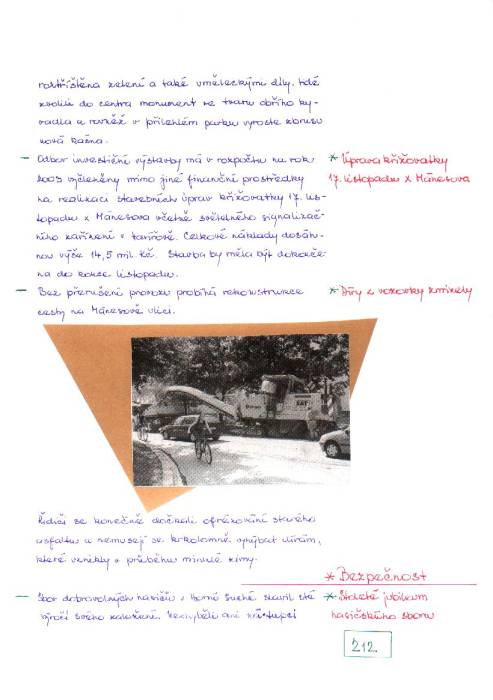 roztříštěna zelení a také uměleckými díly, lidé
zvolili do centra monument ve tvaru obřího ky-
vadla a rovněž v přilehlém parku vyroste zbrusu
nová kašna.
– Odbor investiční výstavby má v rozpočtu na rok
2003 vyčleněny mimo jiné finanční prostředky
na realizaci stavebních úprav křižovatky 17. lis-
topadu x Mánesova včetně světelného signalizač-
ního zařízení v Havířově. Celkové náklady dosáh-
nou výše 14,5 mil. Kč. Stavba by měla být dokonče-
na do konce listopadu.
* Úprava křižovatky
17. listopadu x Mánesova
– Bez přerušení provozu probíhá rekonstrukce
cesty na Mánesově ulici.
* Díry z vozovky zmizely
Řidiči se konečně dočkali ofrézování starého
asfaltu a nemusejí se krkolomně vyhýbat dírám,
které vznikly v průběhu minulé zimy.
* Bezpečnost
– Sbor dobrovolných hasičů v Horní Suché slavil sté
výročí svého založení. Nechyběli ani zástupci
* Stoleté jubileum
hasičského sboru
212.